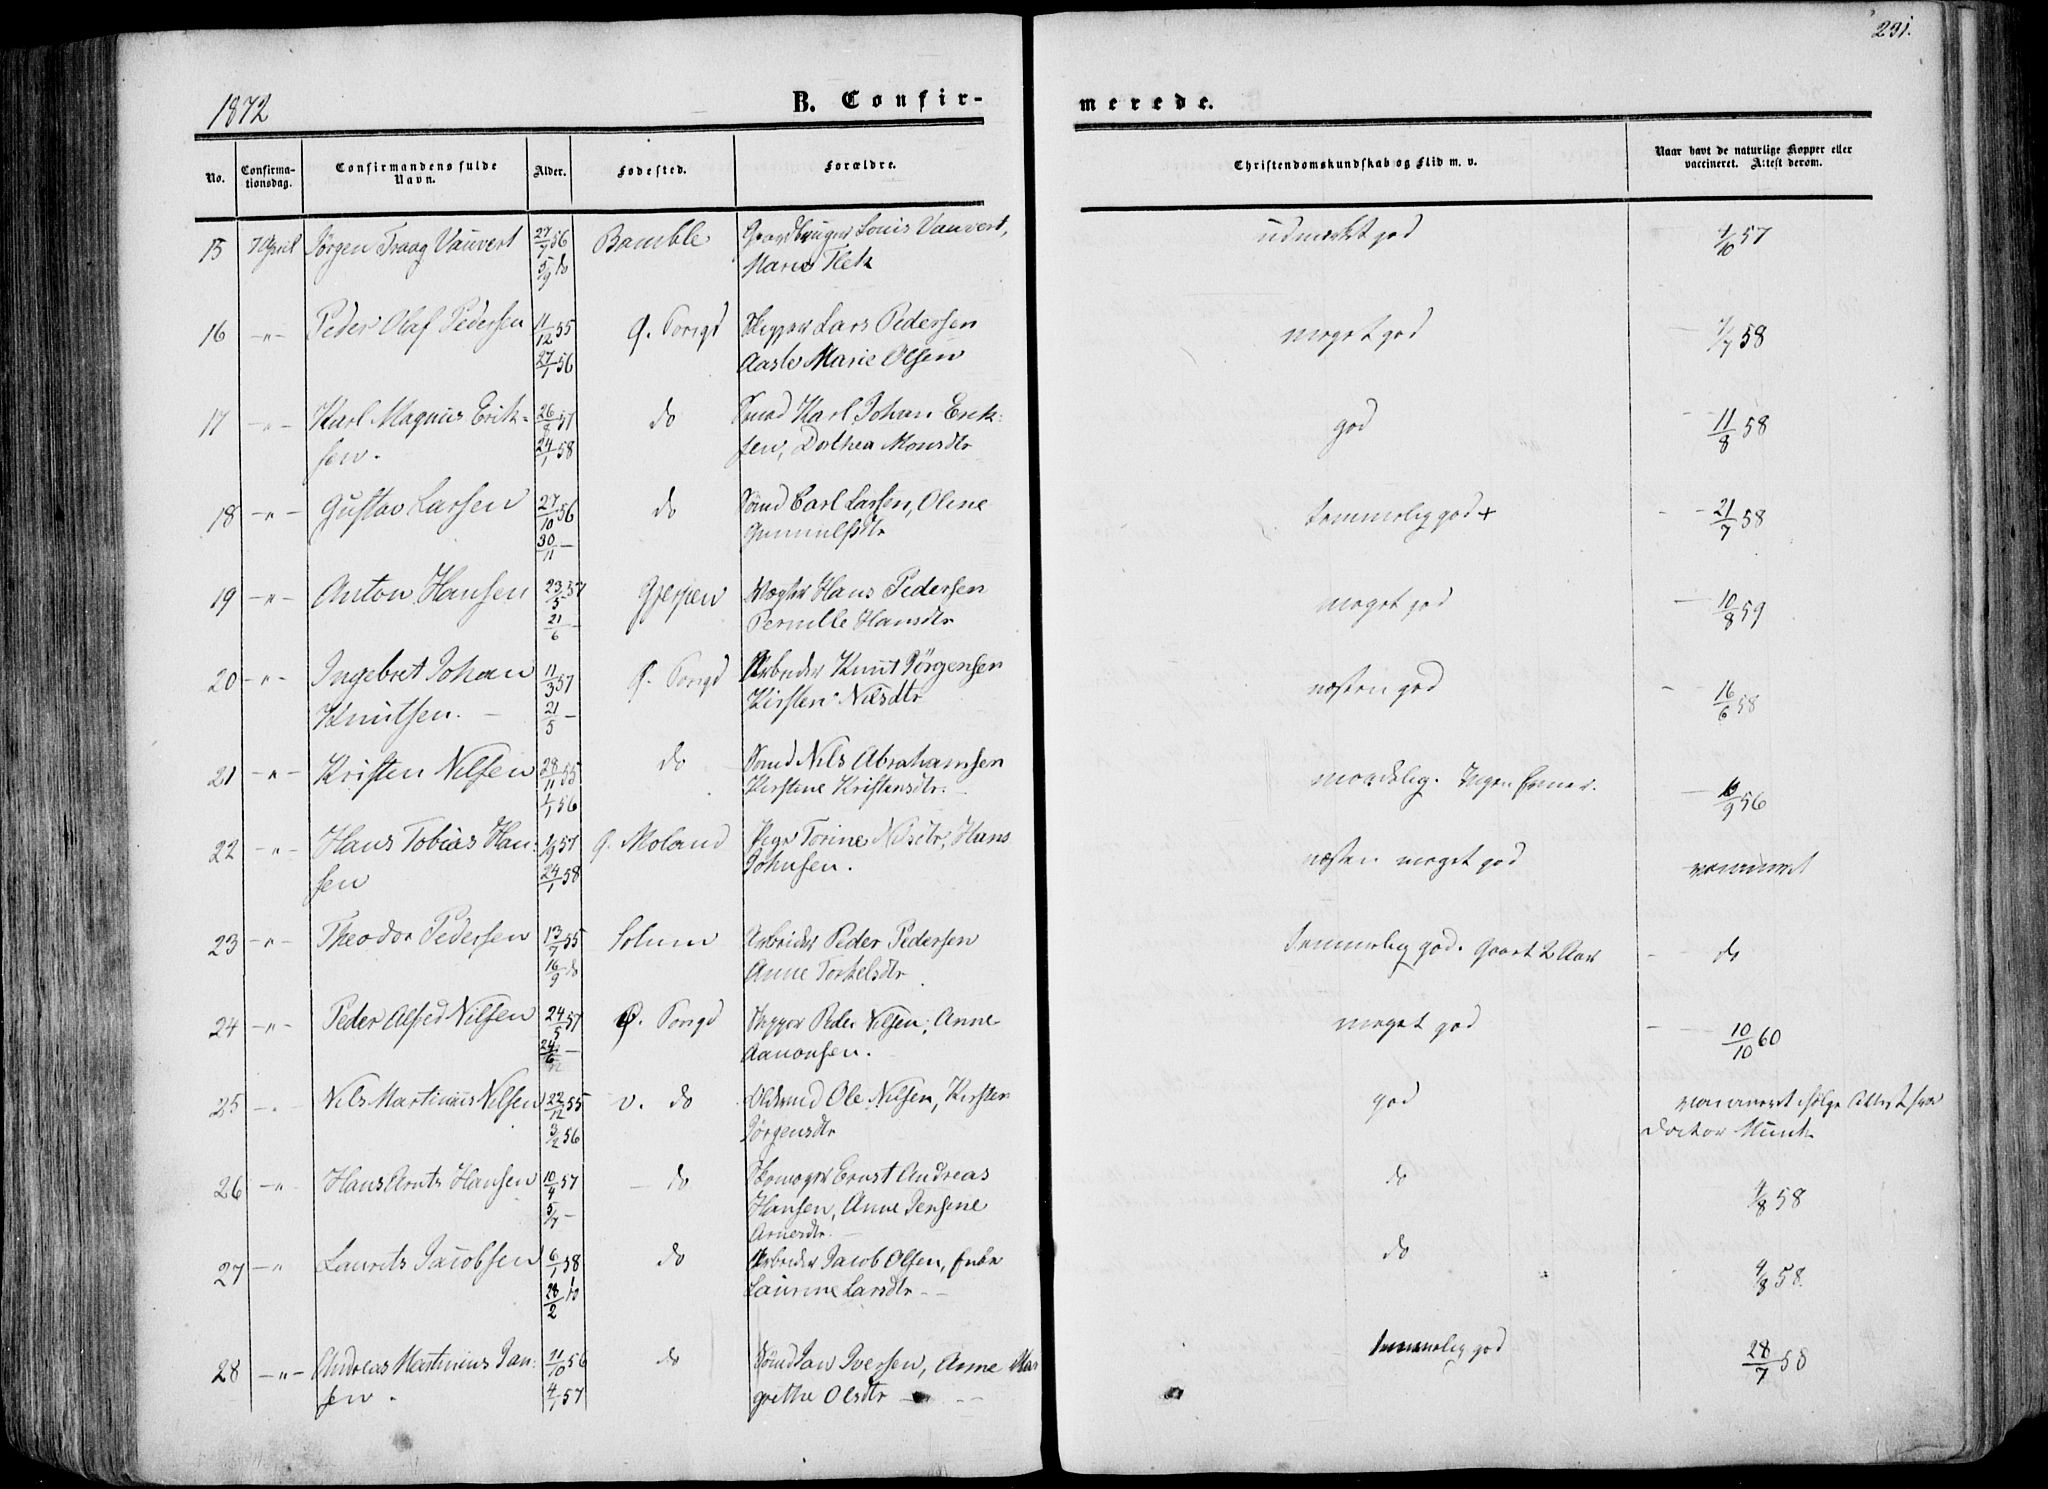 1872
B. Confirmerede.
231.
No.
Confirmationsdag.
Confirmandens fulde Navn.
Alder.
Fødested.
Forældre.
Christendomskundskab og Flid m. v.
Naar havt de naturlige Kopper eller vaccineret. Attest derom.
15 7 April Jørgen Traag Vauvert 27/7 56 Bamble Gaardbruger Louis Vauvert, udmærket god 9/6 57
5/9 do Maria Flek
16 -"- Peder Olaf Pedersen 11/12 55 Ø. Porsgd Skipper Lars Pedersen meget god 7/7 58
27/1 56 Aasle Marie Olsen
17 -"- Karl Magnus Erik- 26/8 57 do Smed Karl Johan Erik- god 11/8 58
sen. 24/1 58 sen, Dorthea Monsdtr
18 -"- Gustav Larsen 27/10 56 do Sømd Carl Larsen, Oline temmelig god + - - 21/7 58
30/11 - Gunnulfsdtr
19 -"- Anton Hansen 23/5 57 Gjerpen Vægter Hans Pedersen meget god - 10/8 59
21/6 - Pernille Hansdtr
20 -"- Ingebret Johan 11/3 57 Ø. Porsgd Arbeider Knut Jørgensen næsten god - 16/6 58
Knutsen. - 21/5 - Kirsten Nilsdtr
21 -"- Kristen Nilsen 28/11 55 do Sømd Nils Abrahamsen maadelig. Ingen Evner. - 13/9 56
1/1 56 Kirstine Kristensdtr.
22 -"- Hans Tobias Han- 1/9 57 Ø. Moland Pige Torine Nilsdtr, Hans næsten meget god vaccineret
sen 24/1 58 Johnsen.
23 -"- Theodor Pedersen 13/7 55 Solum Arbeider Peder Pedersen temmelig god. Gaaet 2 Aar - do
16/9 do Anne Torkelsdtr
24 -"- Peder Alfred Nilsen 24/5 57 Ø. Porsgd Skipper Peder Nilsen, Anne meget god - 10/10 60
24/6 - Aanonsen.
25 -"- Nils Martinius Nilsen 22/12 55 v. do Ole Nilsen, Kirsten god vaccineret ifølge Attest fra
3/2 56 Jørgensdtr Doctor Munk
26 -"- Hans Arnts Hansen 10/4 57 - do Skomager Ernst Andreas do 9/8 58
5/7 - Hansen, Anne Jensine
Arnesdtr. -
27 -"- Laurits Jacobsen 6/1 58 do Arbeider Jacob Olsen, Enke do 9/8 58.
28/2 do Laurine Larsdtr - -
28 -"- Andreas Martinius Jan- 11/10 56 do Sømd Jan Iversen, Anne Mar temmelig god 28/7 58
sen. 4/1 57 grethe Olsdtr - - -